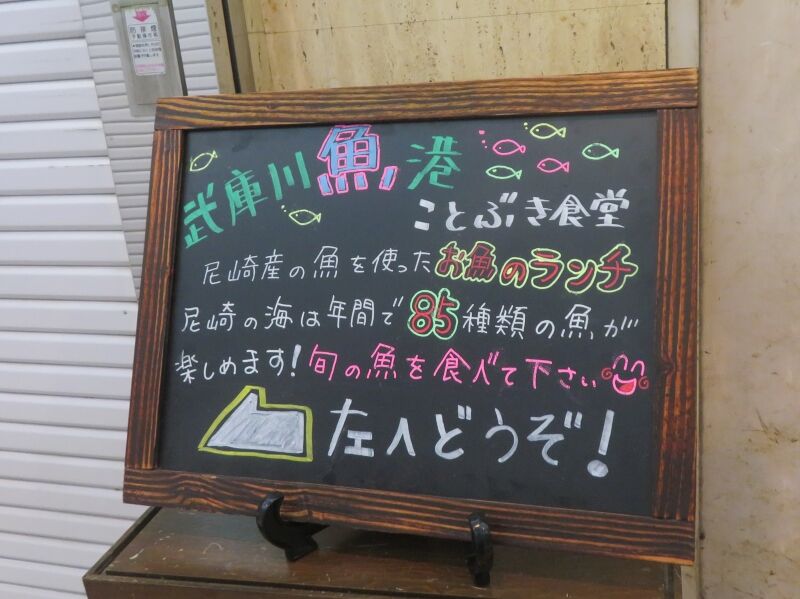 武庫川魚港
ことぶき食堂
尼崎産の魚を使ったお魚のランチ
尼崎の海は年間で85種類の魚が
楽しめます!旬の魚を食べて下さい
左へどうぞ!